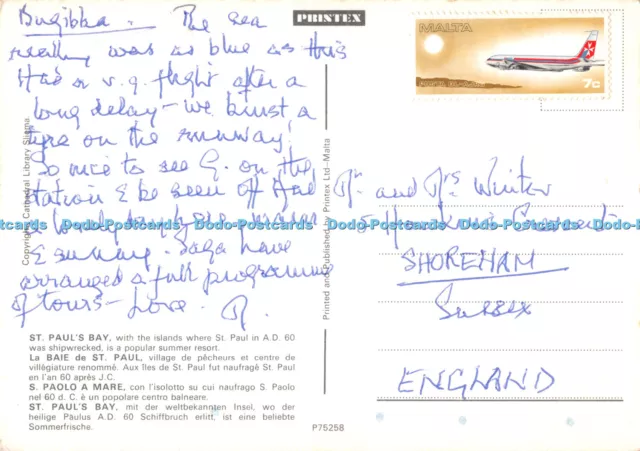 Bugibba. The sea
really was as blue as this
Had a v.g. flight after a
long delay - we burst a
tyre on the runway!
So nice to see G. on the
station & be seen off. Had
a lovely
& sunny. Saga have
arranged a full programme
of tours - Love
PRINTEX
MALTA
7c
Mr. and Mrs Winter
5
SHOREHAM
Sussex
ENGLAND
Copyright Cathedral Library Sliema
Printed and Published by Printex Ltd-Malta
Dodo-Postcards Dodo-Postcards Dodo-Postcards Dodo-Postcards Dodo-Postcards Dodo-Postcards
ST. PAUL'S BAY, with the islands where St. Paul in A.D. 60
was shipwrecked, is a popular summer resort.
La BAIE de ST. PAUL, village de pêcheurs et centre de
villégiature renommé. Aux îles de St. Paul fut naufragè St. Paul
en l'an 60 après J.C.
S. PAOLO A MARE, con l'isolotto su cui naufrago S. Paolo
nel 60 d. C. è un popolare centro balneare.
ST. PAUL'S BAY, mit der weltbekannten Insel, wo der
heilige Paulus A.D. 60 Schiffbruch erlitt, ist eine beliebte
Sommerfrische.
P75258